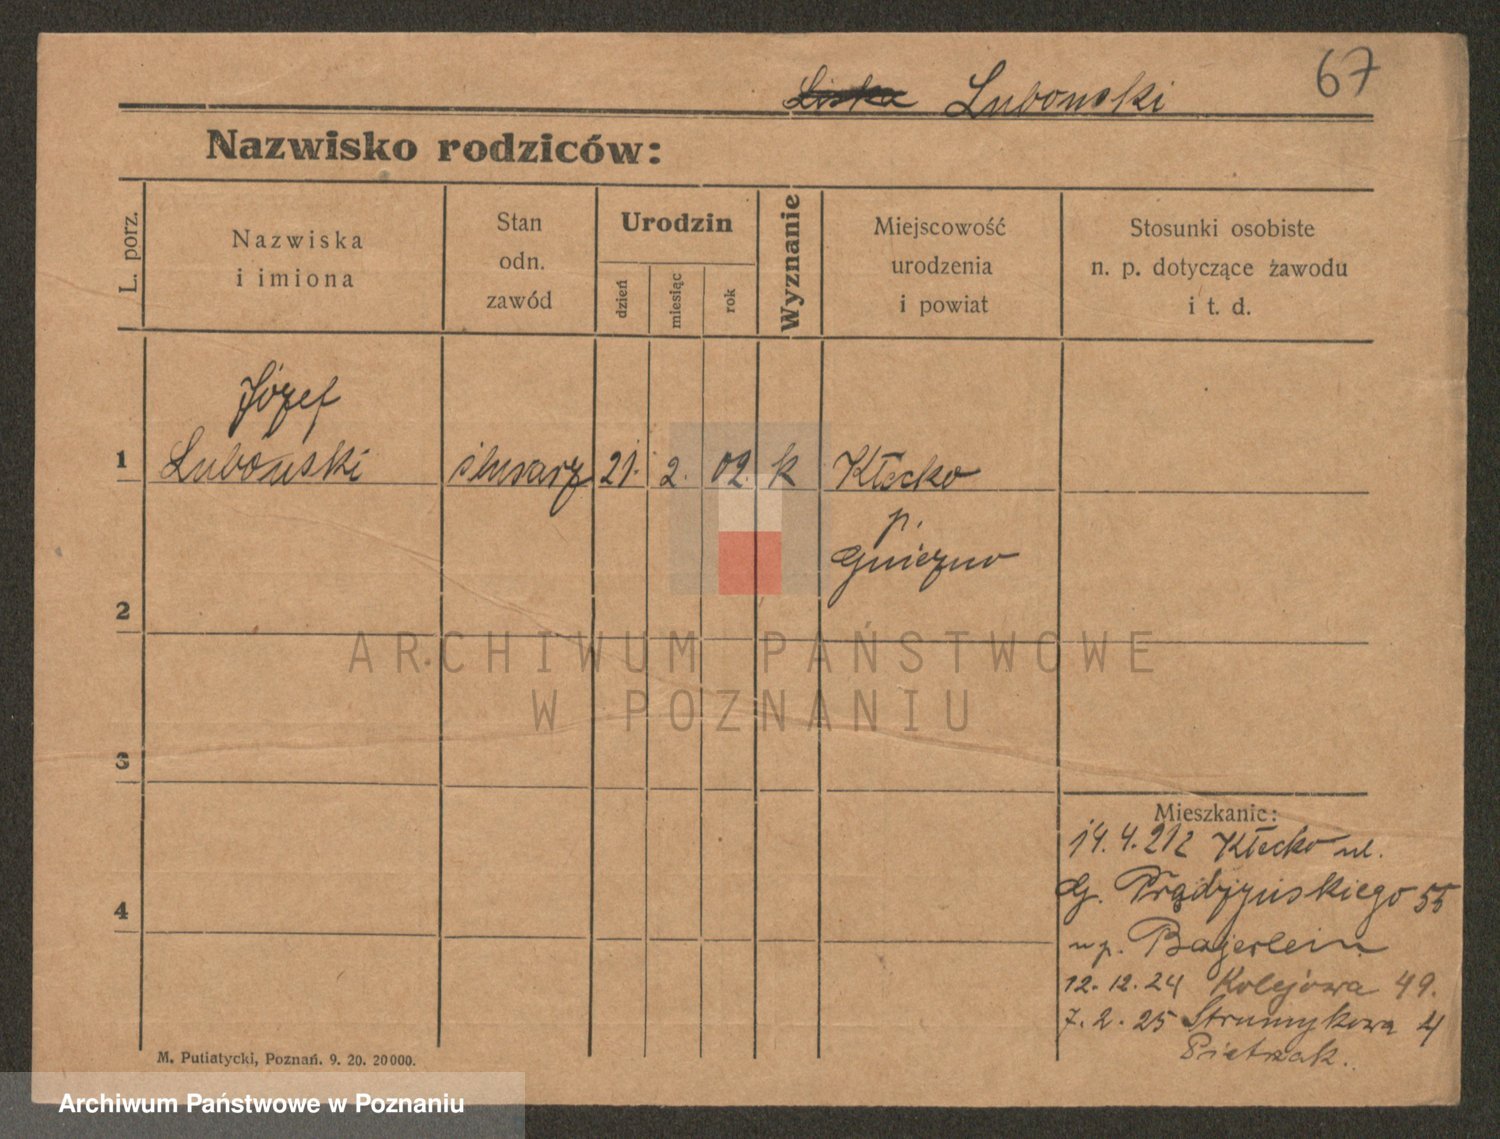 67
Liska Lubonski
Nazwisko rodziców:
L. porz.
Nazwiska
i imiona
Stan
odn.
zawód
Urodzin
dzień
miesiąc
rok
Wyznanie
Miejscowość
urodzenia
i powiat
Stosunki osobiste
n. p. dotyczące zawodu
i t. d.
Józef
1 Lubonski ślusarz 21. 2. 02. k Kłecko
p.
Gniezno
2
ARCHIWUM PAŃSTWOWE
W POZNANIU
3
Mieszkanie:
14.4.212 Kłecko ul.
4
Prądzyńskiego 55
up. Bajerlein
12.12.24 Kolejowa 49.
7.2.25 Strumykowa 4
Pietrzak.
M. Putiatycki, Poznań. 9. 20. 20000.
Archiwum Państwowe w Poznaniu